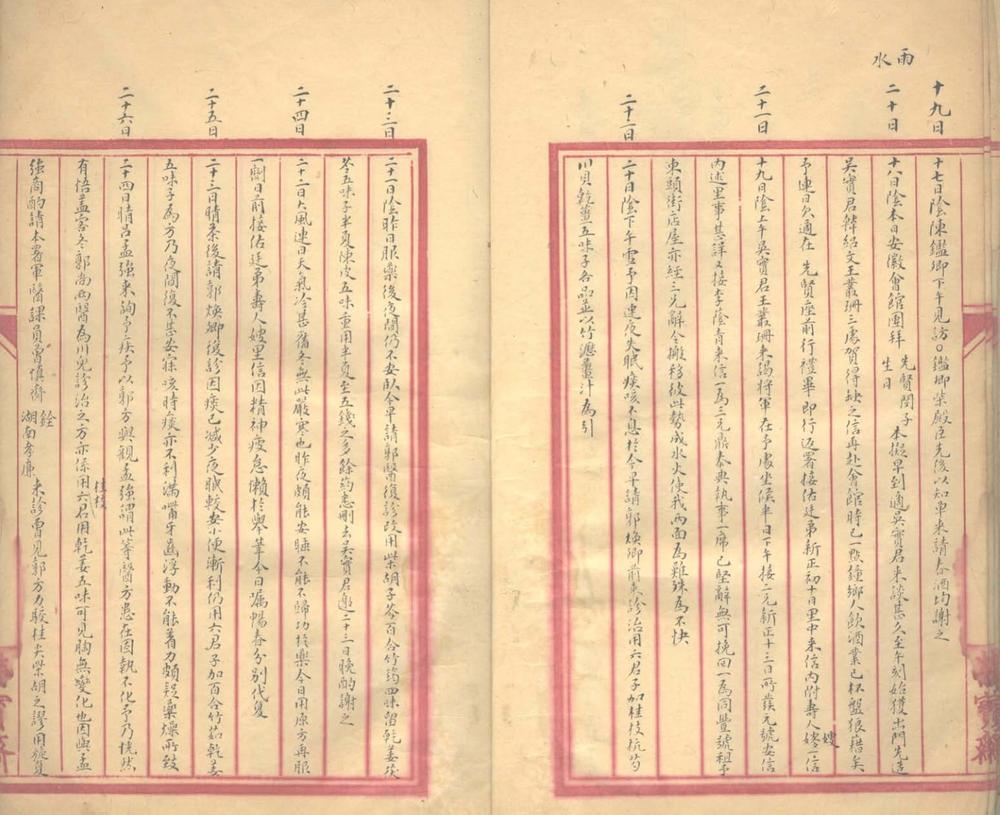 雨水
十九日
十七日陰陳鑑卿下午見訪○鑑卿榮殿臣先後以知單來請春酒均謝之
二十日
十八日陰本日安徽會館團拜 先賢閔子生日 本擬早到適吳實君來談甚久至午刻始獲出門先造
吳實君韓紹文王叢珊三處賀得缺之信再赴會館時已一點鐘鄉人飲酒業已杯盤狼藉矣
予連日欠適在 先賢座前行禮畢即行返署接佑廷弟新正初十日里中來信內附壽人嫂一信
二十一日
十九日陰上午吳實君王叢珊來謁將軍在予處坐候半日下午接二兄新正十三日所發元號安信
內述里事甚詳又接李蔭青來信一為三元鼎泰典執事一席已堅辭無可挽回一為同豐號租予
東頭街店屋亦經三兄辭令搬移彼此勢成水火使我兩面為難殊為不快
二十二日
二十日陰下午雪予因連夜失眠痰咳不息於今早請郭煥卿前來診治用六君子加桂枝杭芍
川貝乾薑五味子各品並以竹瀝薑汁為引
二十三日
二十一日陰昨日服藥後夜間仍不安臥今早請郭醫復診改用柴胡子芩百合竹筎四味留乾姜茯
苓五味子半夏陳皮五味重用半夏至五錢之多餘药悉刪去吳實君邀二十三日晚酌謝之
二十四日
二十二日大風連日天氣冷甚舊冬無此嚴寒也昨夜頗能安睡不能不歸功於藥今日用原方再服
一劑日前接佑廷弟壽人嫂里信因精神疲怠懶於舉筆今日囑暢春分別代复
二十五日
二十三日晴茶後請郭煥卿復診因痰已減少夜眠較安小便漸利仍用六君子加百合竹茹乾姜
五味子為方乃夜間復不甚安寐咳時痰亦不利滿嘴牙齒浮動不能著力頗疑藥燥所致
二十六日
二十四日晴呂孟強來詢予疾予以郭方與觀孟強謂此等醫方患在固執不化予乃恍然
有悟蓋客冬郭尚兩醫為川兒診治之方亦係用六君用桂枝乾姜五味可見胸無變化也因與孟
強商酌請本署軍醫課員曾慎齋銓湖南孝廉來診曾見郭方力駁桂芡柴胡之謬用旋复